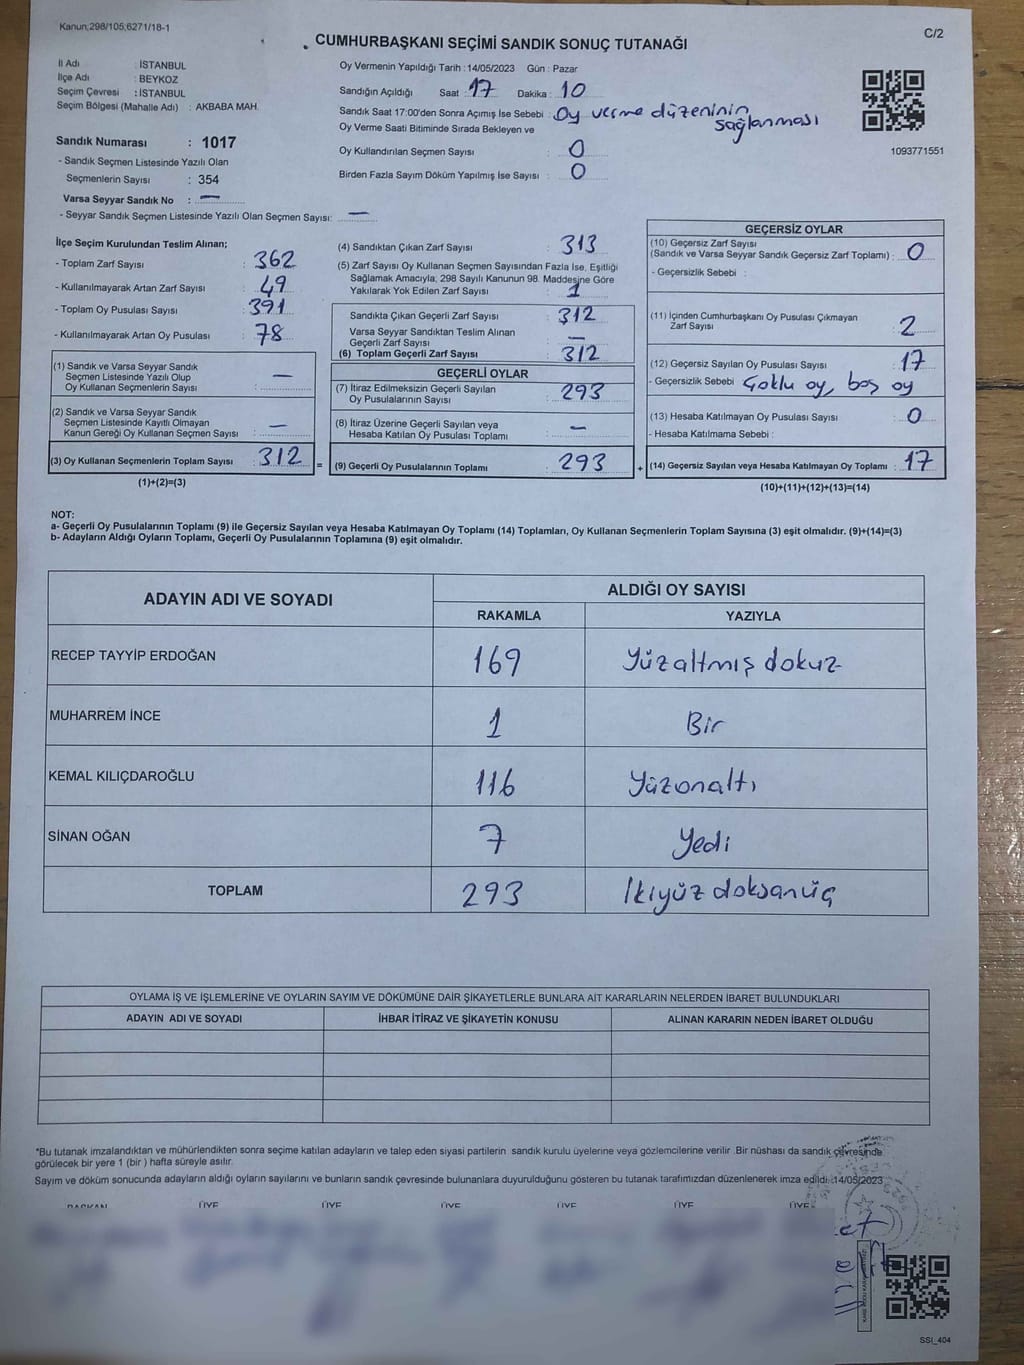 Kanun;298/105;6271/18-1
C/2
CUMHURBAŞKANI SEÇİMİ SANDIK SONUÇ TUTANAĞI
İl Adı : İSTANBUL
İlçe Adı : BEYKOZ
Seçim Çevresi : İSTANBUL
Seçim Bölgesi (Mahalle Adı) : AKBABA MAH.
Sandık Numarası : 1017
- Sandık Seçmen Listesinde Yazılı Olan
Seçmenlerin Sayısı : 354
Varsa Seyyar Sandık No : —
- Seyyar Sandık Seçmen Listesinde Yazılı Olan Seçmen Sayısı: —
Oy Vermenin Yapıldığı Tarih : 14/05/2023 Gün : Pazar
Sandığın Açıldığı Saat : 17 Dakika : 10
Sandık Saat 17:00'den Sonra Açımış İse Sebebi : Oy verme düzeninin
sağlanması
Oy Verme Saati Bitiminde Sırada Bekleyen ve
Oy Kullandırılan Seçmen Sayısı : 0
Birden Fazla Sayım Döküm Yapılmış İse Sayısı : 0
1093771551
İlçe Seçim Kurulundan Teslim Alınan;
- Toplam Zarf Sayısı : 362
- Kullanılmayarak Artan Zarf Sayısı : 49
- Toplam Oy Pusulası Sayısı : 391
- Kullanılmayarak Artan Oy Pusulası : 78
(1) Sandık ve Varsa Seyyar Sandık
Seçmen Listesinde Yazılı Olup
Oy Kullanan Seçmenlerin Sayısı : —
(2) Sandık ve Varsa Seyyar Sandık
Seçmen Listesinde Kayıtlı Olmayan
Kanun Gereği Oy Kullanan Seçmen Sayısı : —
(3) Oy Kullanan Seçmenlerin Toplam Sayısı : 312
(1)+(2)=(3)
(4) Sandıktan Çıkan Zarf Sayısı : 313
(5) Zarf Sayısı Oy Kullanan Seçmen Sayısından Fazla İse, Eşitliği
Sağlamak Amacıyla, 298 Sayılı Kanunun 98. Maddesine Göre
Yakılarak Yok Edilen Zarf Sayısı : 1
Sandıkta Çıkan Geçerli Zarf Sayısı : 312
Varsa Seyyar Sandıktan Teslim Alınan
Geçerli Zarf Sayısı : —
(6) Toplam Geçerli Zarf Sayısı : 312
GEÇERLİ OYLAR
(7) İtiraz Edilmeksizin Geçerli Sayılan
Oy Pusulalarının Sayısı : 293
(8) İtiraz Üzerine Geçerli Sayılan veya
Hesaba Katılan Oy Pusulası Toplamı : —
= (9) Geçerli Oy Pusulalarının Toplamı : 293
GEÇERSİZ OYLAR
(10) Geçersiz Zarf Sayısı
(Sandık ve Varsa Seyyar Sandık Geçersiz Zarf Toplamı) : 0
- Geçersizlik Sebebi :
(11) İçinden Cumhurbaşkanı Oy Pusulası Çıkmayan
Zarf Sayısı : 2
(12) Geçersiz Sayılan Oy Pusulası Sayısı : 17
- Geçersizlik Sebebi Çoklu oy, boş oy
(13) Hesaba Katılmayan Oy Pusulası Sayısı : 0
- Hesaba Katılmama Sebebi :
+ (14) Geçersiz Sayılan veya Hesaba Katılmayan Oy Toplamı : 17
(10)+(11)+(12)+(13)=(14)
NOT:
a- Geçerli Oy Pusulalarının Toplamı (9) ile Geçersiz Sayılan veya Hesaba Katılmayan Oy Toplamı (14) Toplamları, Oy Kullanan Seçmenlerin Toplam Sayısına (3) eşit olmalıdır. (9)+(14)=(3)
b- Adayların Aldığı Oyların Toplamı, Geçerli Oy Pusulalarının Toplamına (9) eşit olmalıdır.
ADAYIN ADI VE SOYADI
ALDIĞI OY SAYISI
RAKAMLA YAZIYLA
RECEP TAYYİP ERDOĞAN 169 Yüzaltmış dokuz
MUHARREM İNCE 1 Bir
KEMAL KILIÇDAROĞLU 116 Yüzonaltı
SİNAN OĞAN 7 Yedi
TOPLAM 293 İkiyüz doksanüç
OYLAMA İŞ VE İŞLEMLERİNE VE OYLARIN SAYIM VE DÖKÜMÜNE DAİR ŞİKAYETLERLE BUNLARA AİT KARARLARIN NELERDEN İBARET BULUNDUKLARI
ADAYIN ADI VE SOYADI İHBAR İTİRAZ VE ŞİKAYETİN KONUSU ALINAN KARARIN NEDEN İBARET OLDUĞU
*Bu tutanak imzalandıktan ve mühürlendikten sonra seçime katılan adayların ve talep eden siyasi partilerin sandık kurulu üyelerine veya gözlemcilerine verilir .Bir nüshası da sandık çevresinde
görülecek bir yere 1 (bir ) hafta süreyle asılır.
Sayım ve döküm sonucunda adayların aldığı oyların sayılarını ve bunların sandık çevresinde bulunanlara duyurulduğunu gösteren bu tutanak tarafımızdan düzenlenerek imza edildi.:14/05/2023
BAŞKAN ÜYE ÜYE ÜYE ÜYE ÜYE ÜYE
SSI_404